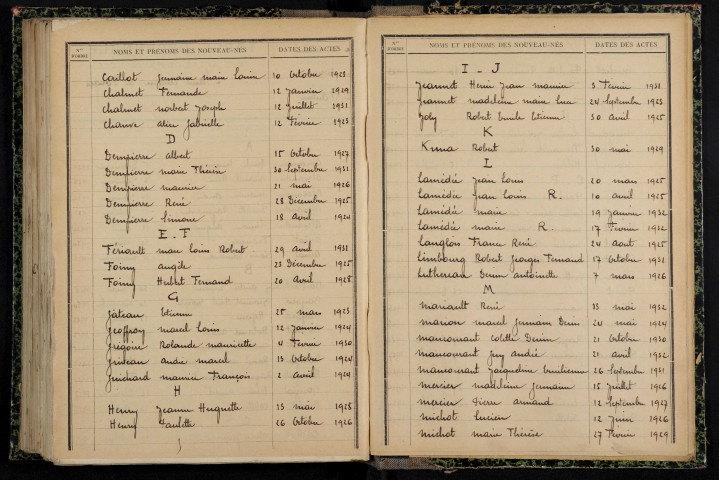 Nos D'ORDRE NOMS ET PRÉNOMS DES NOUVEAU-NÉS DATES DES ACTES
Caillot Germaine Marie Louise 10 octobre 1923
Chalmet Fernande 12 Janvier 1929
Chalmet norbert Joseph 12 Juillet 1931
Chauve alice Gabrielle 12 Février 1923
D
Dempierre albert 15 octobre 1927
Dempierre marie Thérèse 30 septembre 1931
Dempierre maurice 21 mai 1926
Dempierre René 28 Décembre 1925
Dempierre Simone 18 avril 1924
E - F
Fénault Louis Robert 29 avril 1931
Foiny angèle 23 Décembre 1925
Foiny Hubert Fernand 20 avril 1928
G
Gateau Etienne 25 mars 1923
Geoffroy marcel Louis 12 Janvier 1924
Grégoire Rolande mauricette 4 Février 1930
andré marcel 13 octobre 1924
Guichard maurice François 2 avril 1924
H
Henry Jeanne Huguette 13 mai 1928
Henry Paulette 26 octobre 1926
Nos D'ORDRE NOMS ET PRÉNOMS DES NOUVEAU-NÉS DATES DES ACTES
I - J
Jeannet Henri Jean maurice 3 Février 1931
Jeannet madeleine marie 24 septembre 1923
Joly Robert Emile Etienne 30 avril 1925
K
Robert 30 mai 1929
L
Lamédée Jean Louis 20 mars 1925
Lamédée Jean Louis R. 10 avril 1925
Lamédée marie 19 Janvier 1932
Lamédée marie R. 17 Février 1932
Langlois France René 24 août 1925
Limbourg Robert Georges Fernand 17 octobre 1931
Luthereau Denise antoinette 7 mars 1926
M
mariault René 13 mai 1932
marion marcel Germain Denis 24 mai 1924
maucourant Colette Denise 21 octobre 1930
maucourant Guy andré 21 avril 1932
maucourant Jacqueline Emilienne 26 septembre 1931
mercier madeleine Germaine 15 Juillet 1926
mercier Pierre armand 12 septembre 1927
michot Lucien 12 Juin 1926
michot marie Thérèse 27 Février 1929